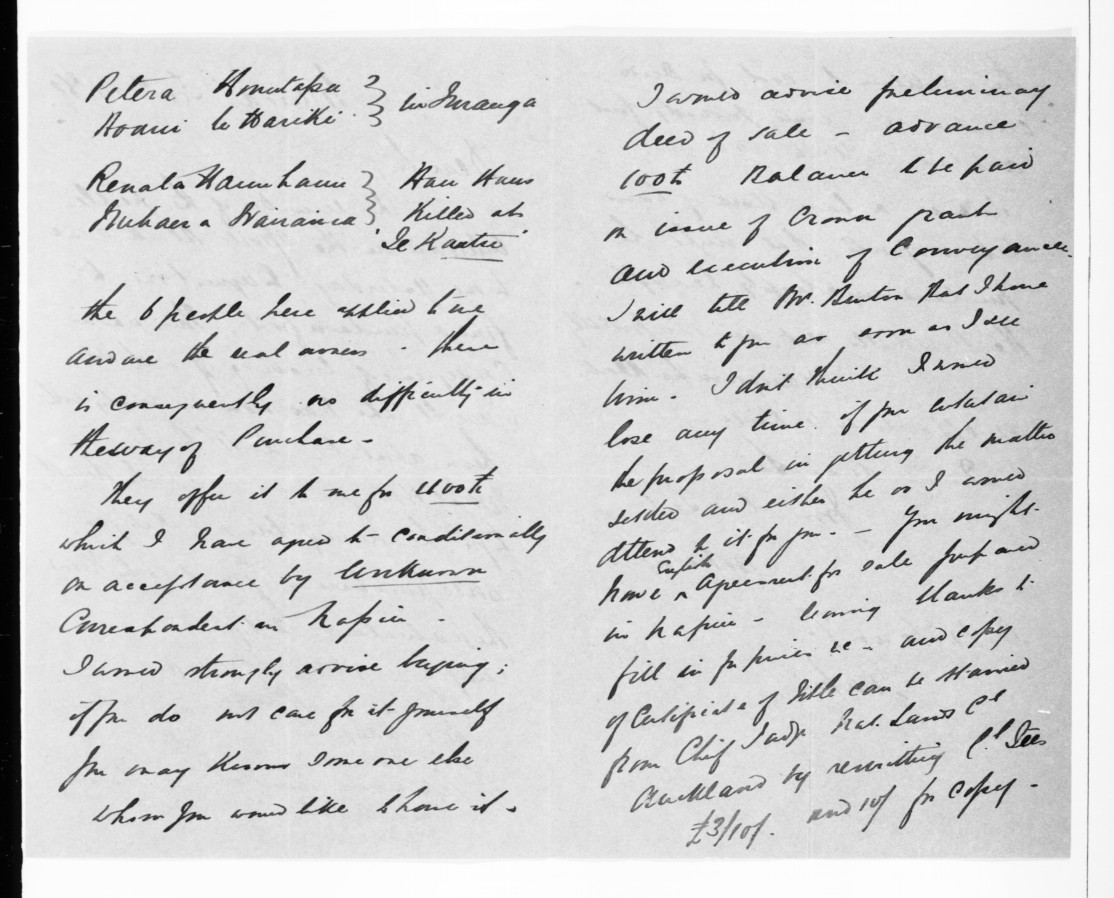 Petera Honotapu } in Turanga
Hoani te Hariki
Renata } Hau Haus
Killed at
'Te
the 6 people here applied to me
and are the real owners - there
is consequently no difficulty in
the way of Purchase -
They offer it to me for £100
which I have agreed to conditionally
on acceptance by Unknown
Correspondent in Napier -
I would strongly advise buying;
if you do not care for it yourself
you may Know some one else
whom you would like to have it -
I would advise preliminary
deed of sale - advance
Balance to be paid
on issue of Crown grant
and execution of Conveyance.
I will tell Mr. that I have
written to you as soon as I see
him - I don't think I would
lose any time if you entertain
the proposal in getting the matter
settled and either he or I would
attend to it for you - You might
have English Agreement for sale prepared
in Napier - leaving blanks to
fill in for prices &c - and copy
of Certificate of Title can be obtained
from Chief Judge Nat. Lands Ct
Auckland by remitting Ct fees
£3/10/. and 10/ for copy -